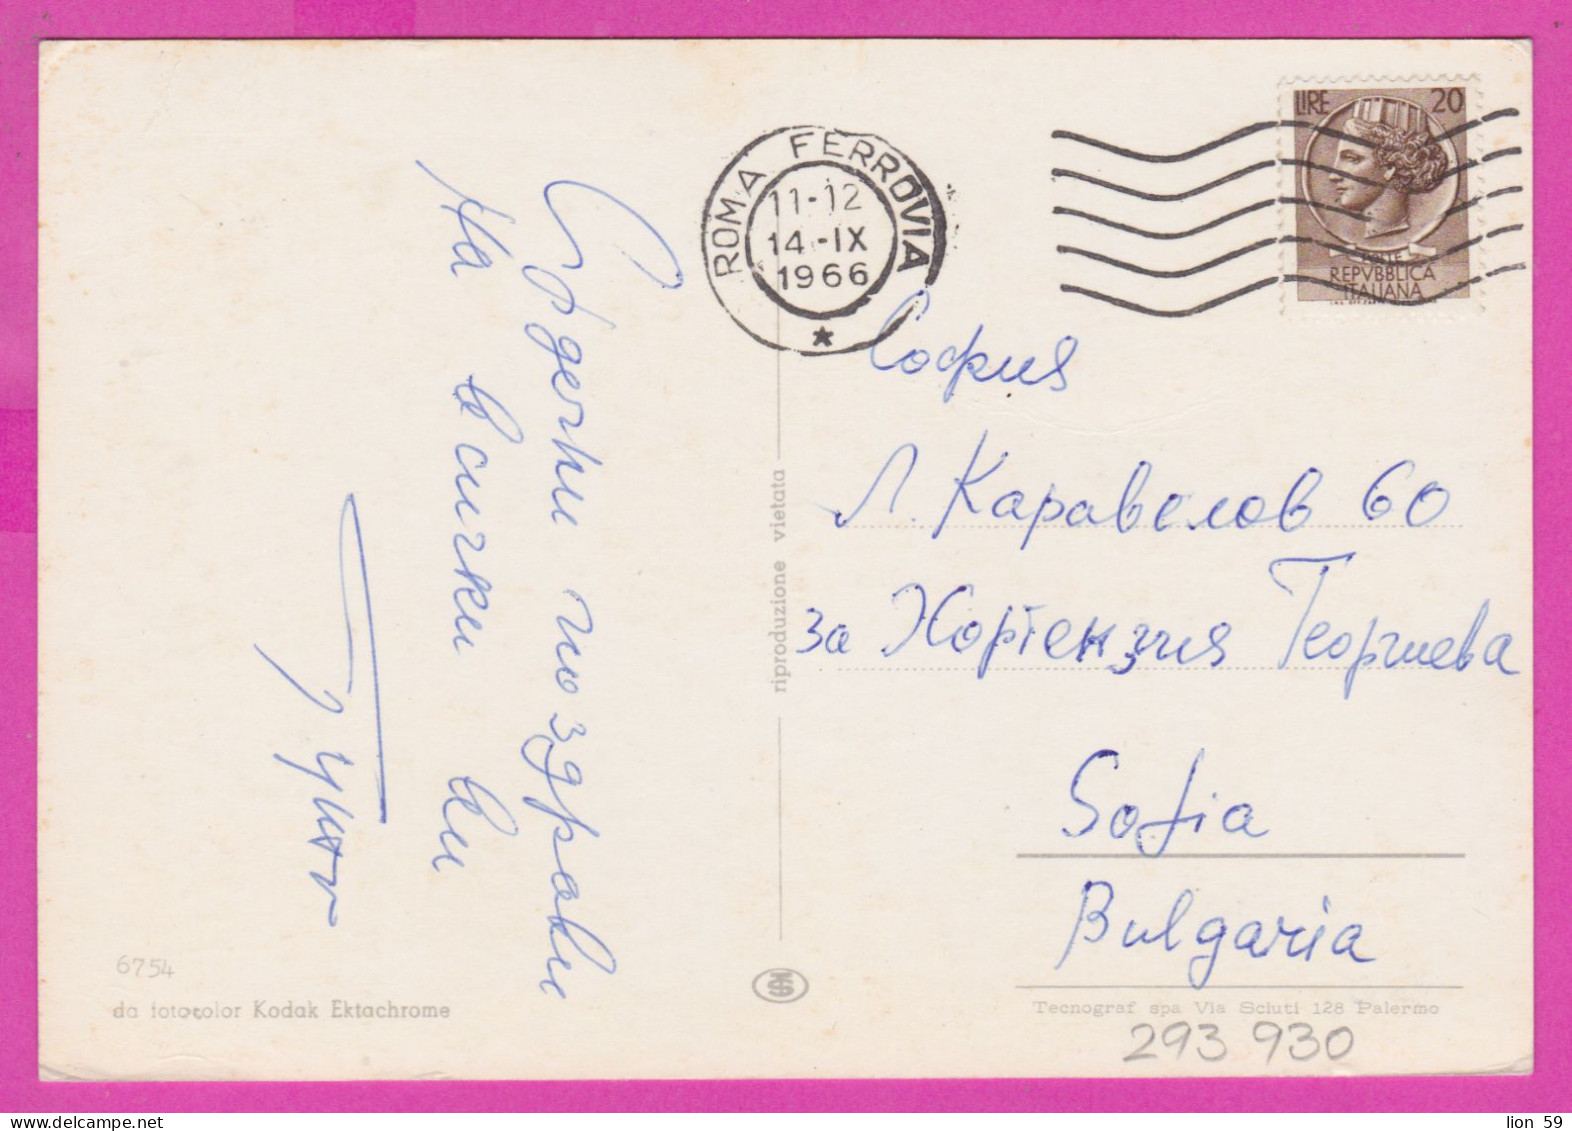 LIRE 20
POSTE
REPVBBLICA
ITALIANA
ROMA FERROVIA
11-12
14-IX
1966
Сърдечни поздрави
На всички Ви
София
Л. Каравелов 60
за Хортензия Георгиева
Sofia
Bulgaria
riproduzione vietata
6754
da fotocolor Kodak Ektachrome
Tecnograf spa Via Sciuti 128 Palermo
293 930
lion 59